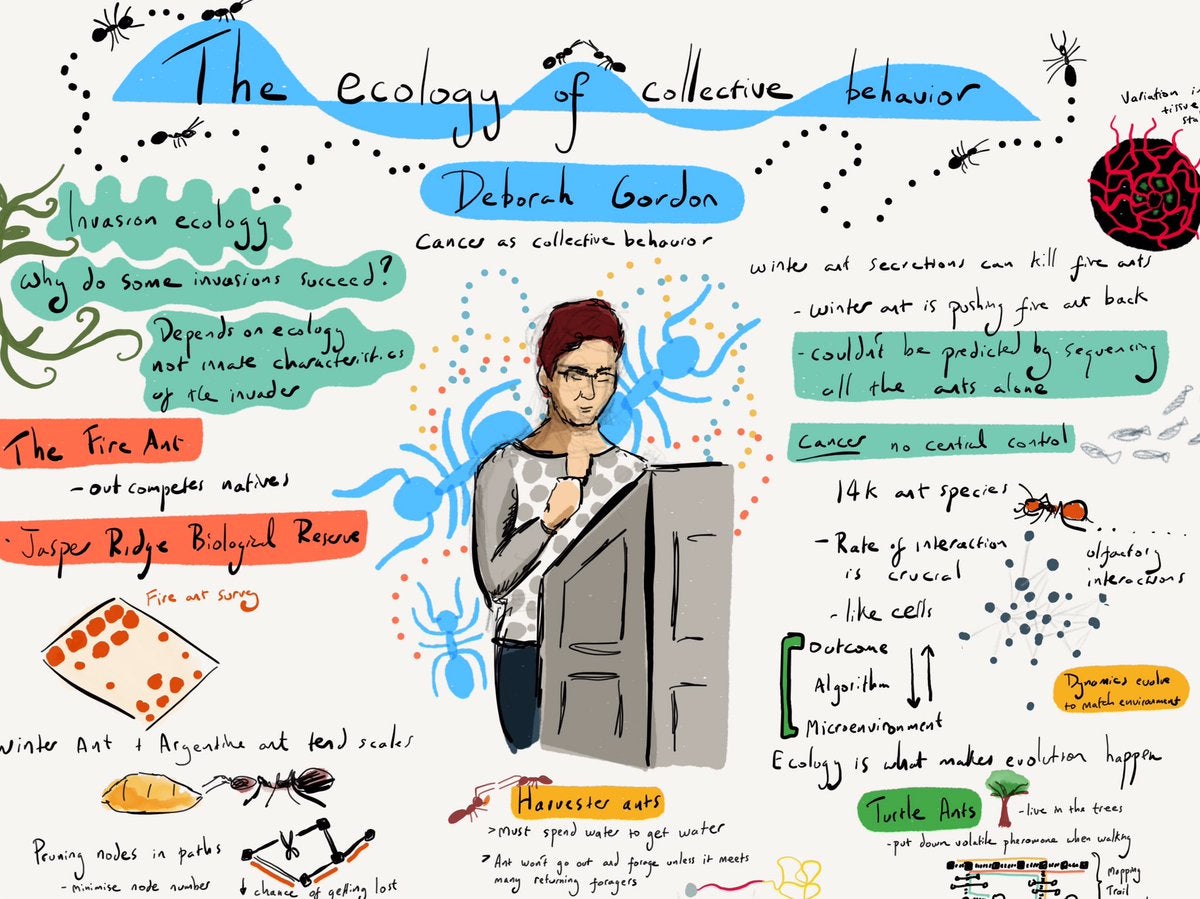 The ecology of collective behavior
Deborah Gordon
Cancer as collective behavior
Invasion ecology
Why do some invasions succeed?
Depends on ecology
not innate characteristics
of the invader
The Fire Ant
- outcompetes natives
· Jasper Ridge Biological Reserve
Fire ant survey
Winter Ant + Argentine ant tend scales
Pruning nodes in paths
- minimise node number
↓ chance of getting lost
Harvester ants
> Must spend water to get water
> Ant won't go out and forage unless it meets
many returning foragers
Variation in
tissue
winter ant secretions can kill fire ants
- winter ant is pushing fire ant back
- couldn't be predicted by sequencing
all the ants alone
Cancer no central control
14k ant species
olfactory
interactions
- Rate of interaction
is crucial
- like cells
Outcome
Algorithm
Microenvironment
Dynamics evolve
to match environment
Ecology is what makes evolution happen
Turtle Ants
- live in the trees
- put down volatile pheromone when walking
Mapping
Trail